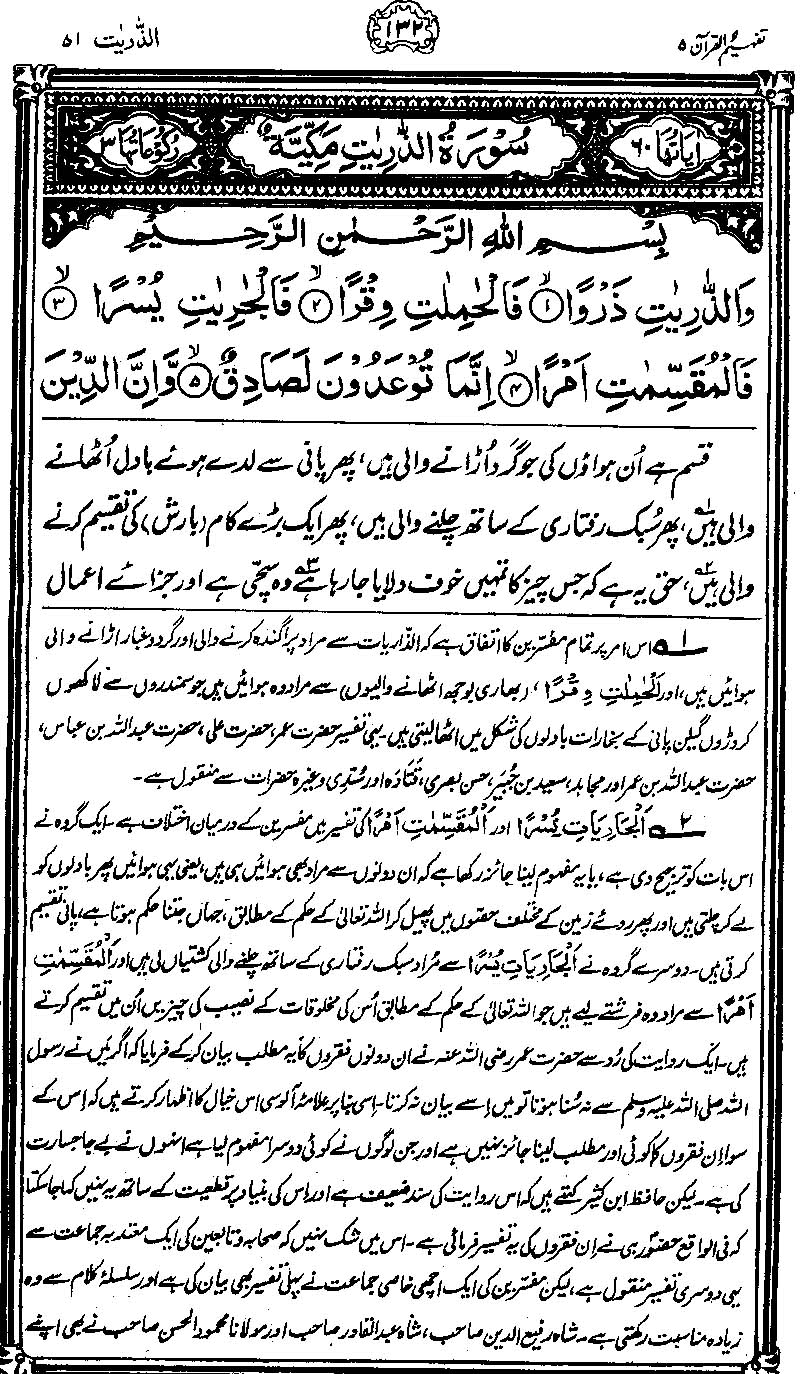 تفہیم القرآن ۵
۱۳۲
الذّٰریٰت ۵۱
اٰیَاتُهَا ۶۰
سُوْرَةُ الذّٰرِیٰتِ مَکِّیَّةٌ
رُکُوْعَاتُهَا ۳
بِسْمِ اللهِ الرَّحْمٰنِ الرَّحِیْمِ
وَالذّٰرِیٰتِ ذَرْوًا ۱ فَالْحٰمِلٰتِ وِقْرًا ۲ فَالْجٰرِیٰتِ یُسْرًا ۳
فَالْمُقَسِّمٰتِ اَمْرًا ۴ اِنَّمَا تُوْعَدُوْنَ لَصَادِقٌ ۵ وَّاِنَّ الدِّیْنَ
قسم ہے اُن ہواؤں کی جو گرد اُڑانے والی ہیں، پھر پانی سے لدے ہوئے بادل اُٹھانے
والی ہیں۱، پھر سُبک رفتاری کے ساتھ چلنے والی ہیں، پھر ایک بڑے کام (بارش) کی تقسیم کرنے
والی ہیں۲، حق یہ ہے کہ جس چیز کا تمہیں خوف دلایا جا رہا ہے۳ وہ سچی ہے اور جزائے اعمال
۱ اس امر پر تمام مفسّرین کا اتفاق ہے کہ الذّاریات سے مراد پراگندہ کرنے والی اور گرد و غبار اڑانے والی
ہوائیں ہیں، اور اَلْحٰمِلٰتِ وِقْرًا، (بھاری بوجھ اٹھانے والیوں) سے مراد وہ ہوائیں ہیں جو سمندروں سے لاکھوں
کروڑوں گیلن پانی کے بخارات بادلوں کی شکل میں اٹھا لیتی ہیں۔ یہی تفسیر حضرت عمر، حضرت علی، حضرت عبداللہ بن عباس،
حضرت عبداللہ بن عمر اور مجاہد، سعید بن جُبیر، حسن بصری، قَتادہ اور سُدّی وغیرہ حضرات سے منقول ہے۔
۲ اَلْجَارِیَاتِ یُسْرًا اور اَلْمُقَسِّمٰتِ اَمْرًا کی تفسیر میں مفسرین کے درمیان اختلاف ہے۔ ایک گروہ نے
اس بات کو ترجیح دی ہے، یا یہ مفہوم لینا جائز رکھا ہے کہ ان دونوں سے مراد بھی ہوائیں ہی ہیں، یعنی یہی ہوائیں پھر بادلوں کو
لے کر چلتی ہیں اور پھر روئے زمین کے مختلف حصّوں میں پھیل کر اللہ تعالیٰ کے حکم کے مطابق، جہاں جتنا حکم ہوتا ہے، پانی تقسیم
کرتی ہیں۔ دوسرے گروہ نے اَلْجَارِیَاتِ یُسْرًا سے مُراد سبک رفتاری کے ساتھ چلنے والی کشتیاں لی ہیں اور اَلْمُقَسِّمٰتِ
اَمْرًا سے مراد وہ فرشتے لیے ہیں جو اللہ تعالیٰ کے حکم کے مطابق اُس کی مخلوقات کے نصیب کی چیزیں اُن میں تقسیم کرتے
ہیں۔ ایک روایت کی رُو سے حضرت عمر رضی اللہ عنہ نے ان دونوں فقروں کا یہ مطلب بیان کر کے فرمایا کہ اگر میں نے رسول
اللہ صلی اللہ علیہ وسلم سے نہ سُنا ہوتا تو میں اِسے بیان نہ کرتا۔ اسی بنا پر علامہ آلوسی اس خیال کا اظہار کرتے ہیں کہ اِس کے
سوا اِن فقروں کا کوئی اور مطلب لینا جائز نہیں ہے اور جن لوگوں نے کوئی دوسرا مفہوم لیا ہے انہوں نے بے جا جسارت
کی ہے۔ لیکن حافظ ابن کثیر کہتے ہیں کہ اس روایت کی سند ضعیف ہے اور اس کی بنیاد پر قطعیت کے ساتھ یہ نہیں کہا جا سکتا
کہ فی الواقع حضورؐ ہی نے اِن فقروں کی یہ تفسیر فرمائی ہے۔ اس میں شک نہیں کہ صحابہ و تابعین کی ایک معتد بہ جماعت سے
یہی دوسری تفسیر منقول ہے، لیکن مفسّرین کی ایک اچھی خاصی جماعت نے پہلی تفسیر بھی بیان کی ہے اور سلسلۂ کلام سے وہ
زیادہ مناسبت رکھتی ہے۔ شاہ رفیع الدین صاحب، شاہ عبدالقادر صاحب اور مولانا محمود الحسن صاحب نے بھی اپنے